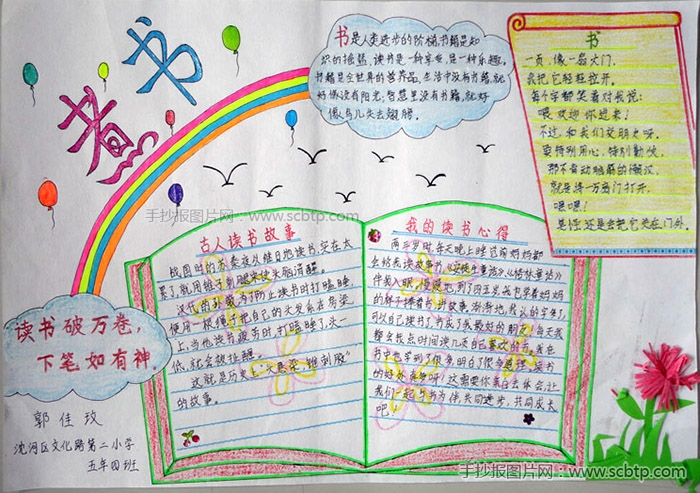 读书
书是人类进步的阶梯,书籍是知
识的摇篮,读书是一种享受,是一种乐趣。
书籍是全世界的营养品,生活中没有书籍,就
好像没有阳光;智慧里没有书籍,就好
像鸟儿失去翅膀。
书
一页,像一扇大门,
我把它轻轻拉开,
每个字都笑着对我说:
喂,欢迎你过来!
不过,和我们交朋友呀,
要特别用心,特别勤快,
那不肯动脑筋的懒汉,
就是得一万扇门打开,
嘿嘿!
是的,还是会把它关在门外。
手抄报图片网:www.scbtp.com
古人读书故事
战国时的苏秦夜以继日地读书,实在太
累了,就用锥子刺腿来使头脑清醒。
汉代的孙敬为了防止读书时打瞌睡
便用一根绳子把自己的头发系在房梁
上,当他读书疲劳时打瞌睡了,头一
低,就会被扯醒。
这就是历史上“头悬梁,锥刺股”
的故事。
我的读书心得
两三岁时,每天晚上睡觉前妈妈都
会给我读故事,《安徒生童话》《格林童话》
伴我入眠,慢慢地到了四五岁,我也学着妈妈
的样子捧着书讲故事,渐渐地,我认的字多了,
可以自己读书了,书成了我最好的朋友!每天我
都会找点时间读几页自己喜欢的书,我在
书中也学到了很多,明白了很多道理,读书
的好处真多呀!这需要你亲自去体会,让
我们一起与书为伴,共同进步,共同成长
吧!
读书破万卷,
下笔如有神。
郭佳玫
沈河区文化路第二小学
五年四班
手抄报图片网:www.scbtp.com